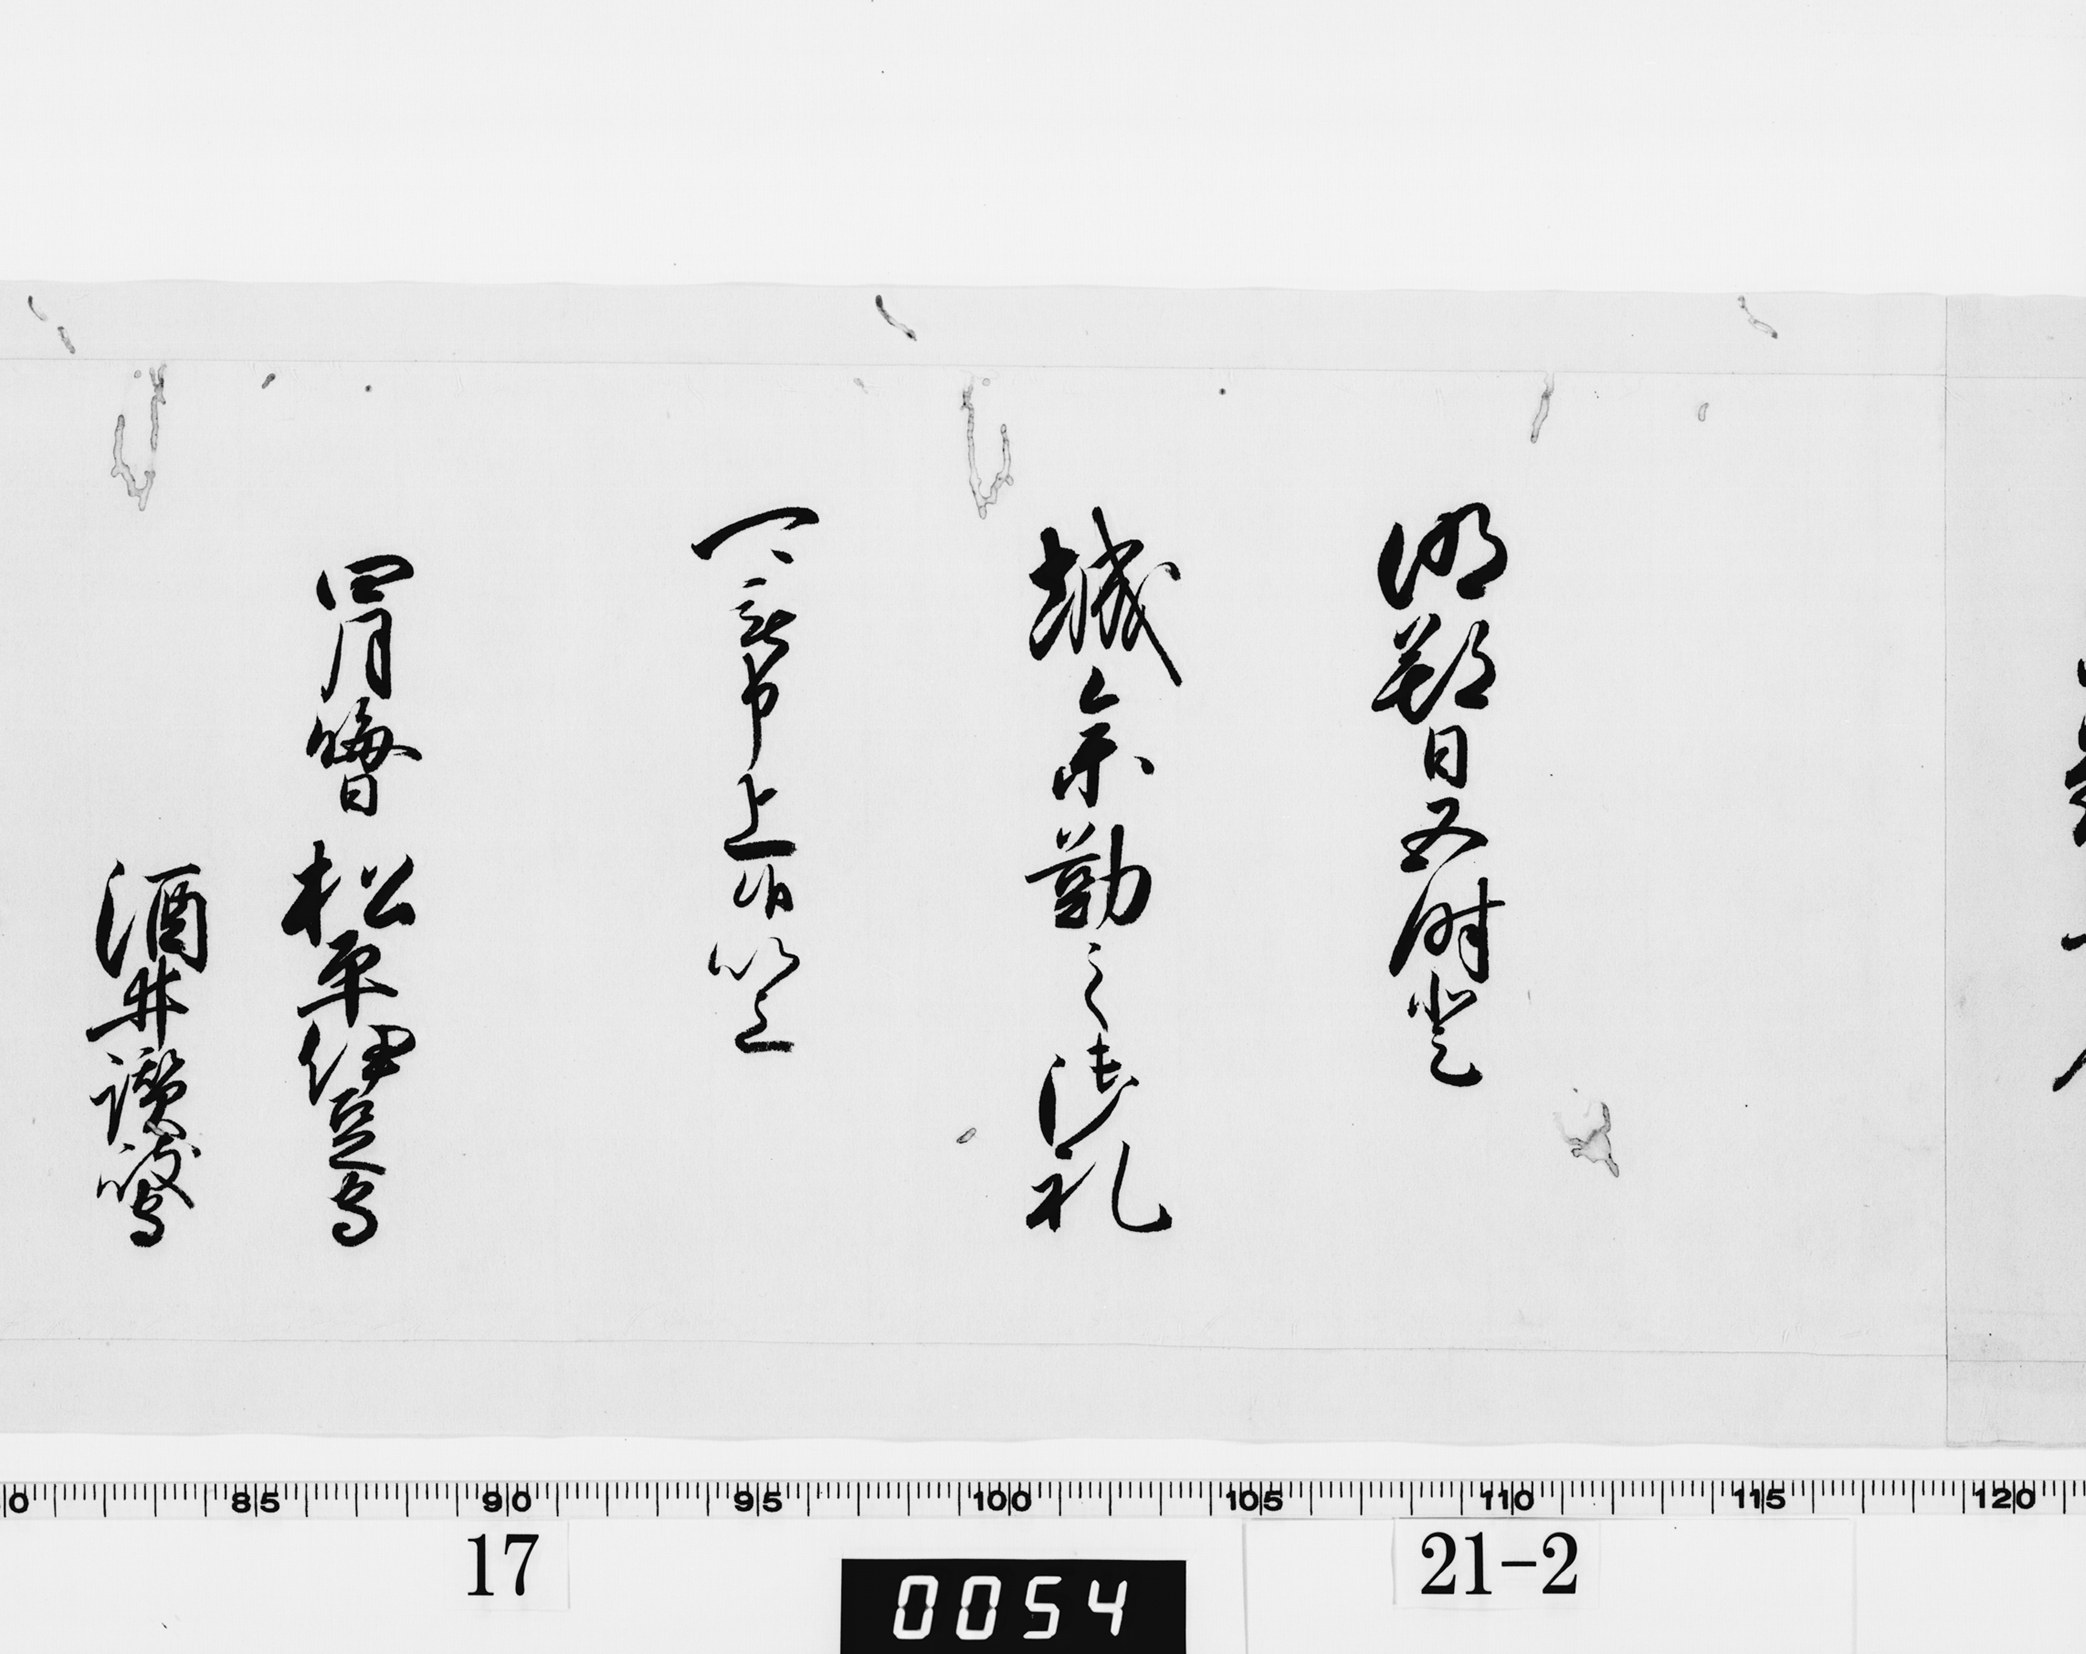 明朔日五時登
城参勤之御礼
可被申上候以上
四月晦日 松平伊豆守
酒井讃岐守
85 90 95 100 105 110 115 120
17
21-2
0054